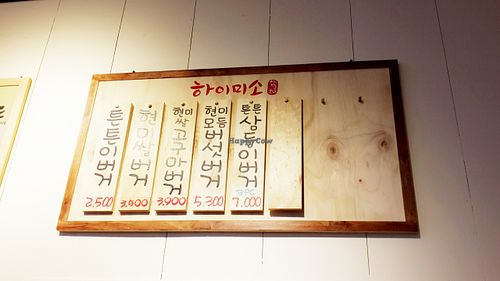 하이미소
튼튼이버거
2,500
현미쌀버거
3,500
현미쌀고구마버거
3,900
현미모듬버섯버거
5,300
튼튼삼둥이버거
3PC
7,000
HappyCow